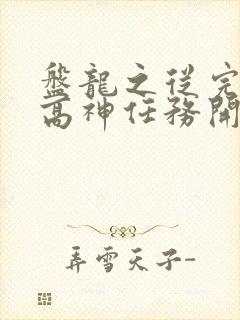 盤龍之從完
高神任務開
弄雪天子-